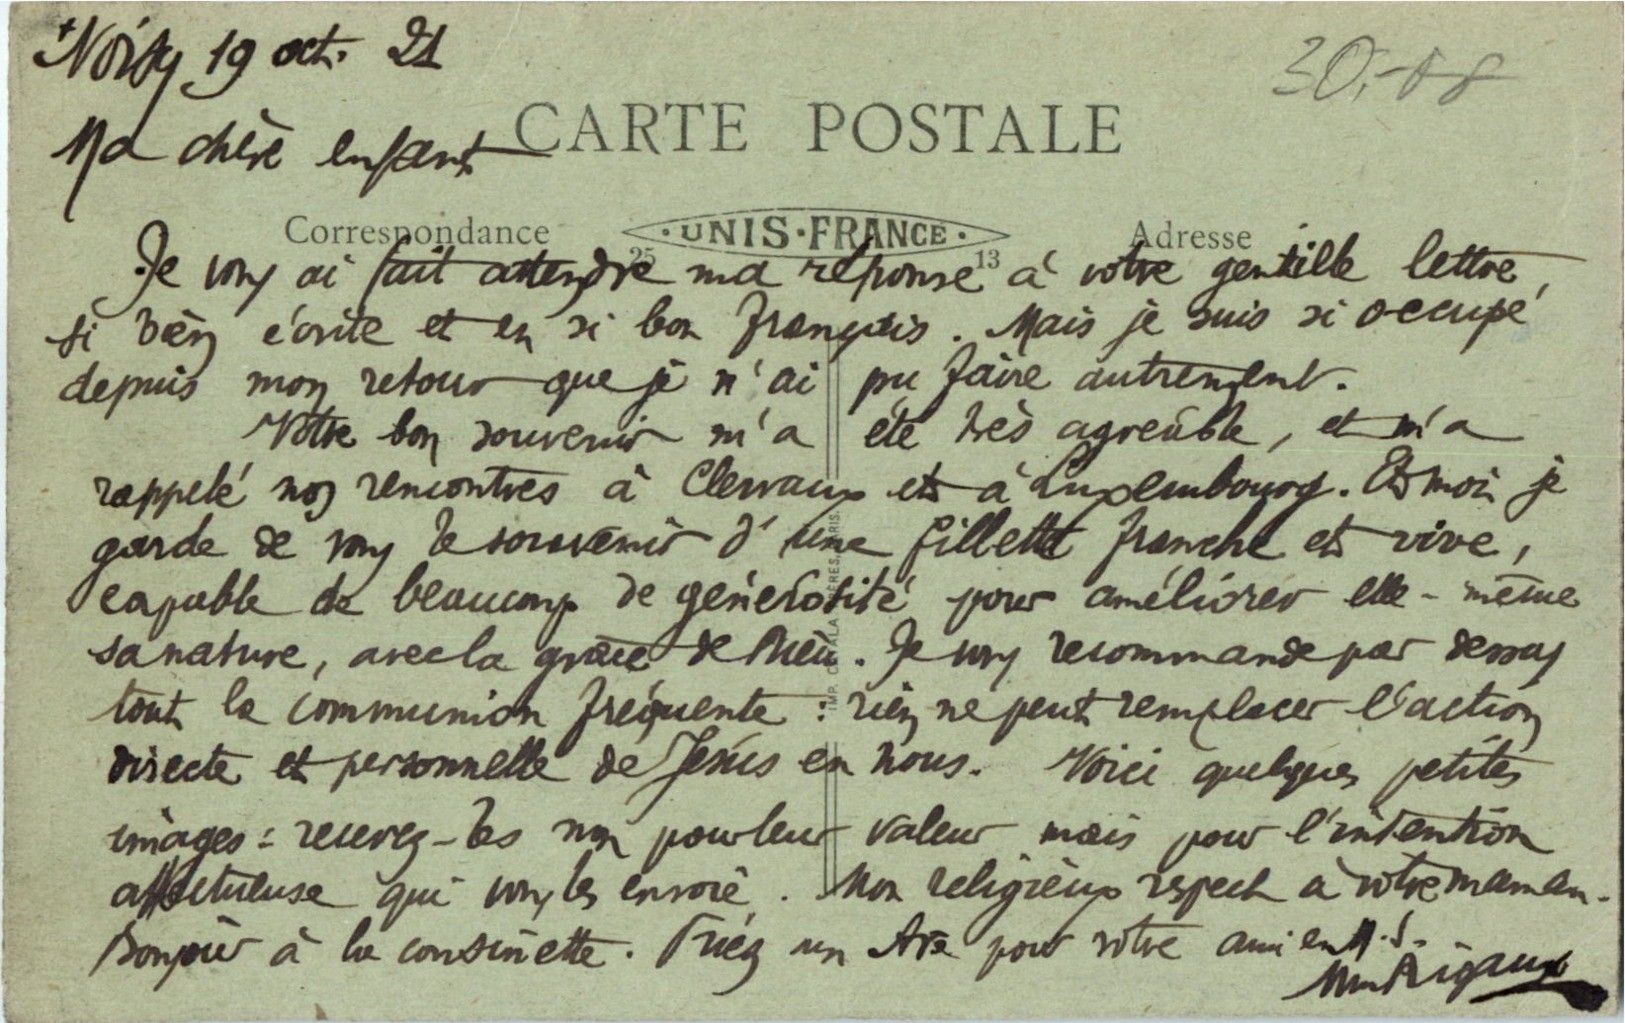 +
Noisy 19 oct. 21
30,-
CARTE POSTALE
Ma chère enfant
Correspondance
UNIS-FRANCE
Adresse
25
13
Je vous ai fait attendre ma réponse à votre gentille lettre,
si bien écrite et en si bon français. Mais je suis si occupé
depuis mon retour que je n'ai pu faire autrement.
Votre bon souvenir m'a été très agréable, et m'a
rappelé nos rencontres à Clervaux et à Luxembourg. Et moi je
garde de vous le souvenir d'une fillette franche et vive,
capable de beaucoup de générosité pour améliorer elle-même
sa nature, avec la grâce de Dieu. Je vous recommande par dessus
tout la communion fréquente : rien ne peut remplacer l'action
directe et personnelle de Jésus en nous. Voici quelques petites
images : recevez-les non pour leur valeur mais pour l'intention
affectueuse qui vous les envoie. Mon religieux respect à votre maman.
Bonjour à la cousinette. Priez un Ave pour votre ami en N.S.
Rigaux
IMP. PARIS.